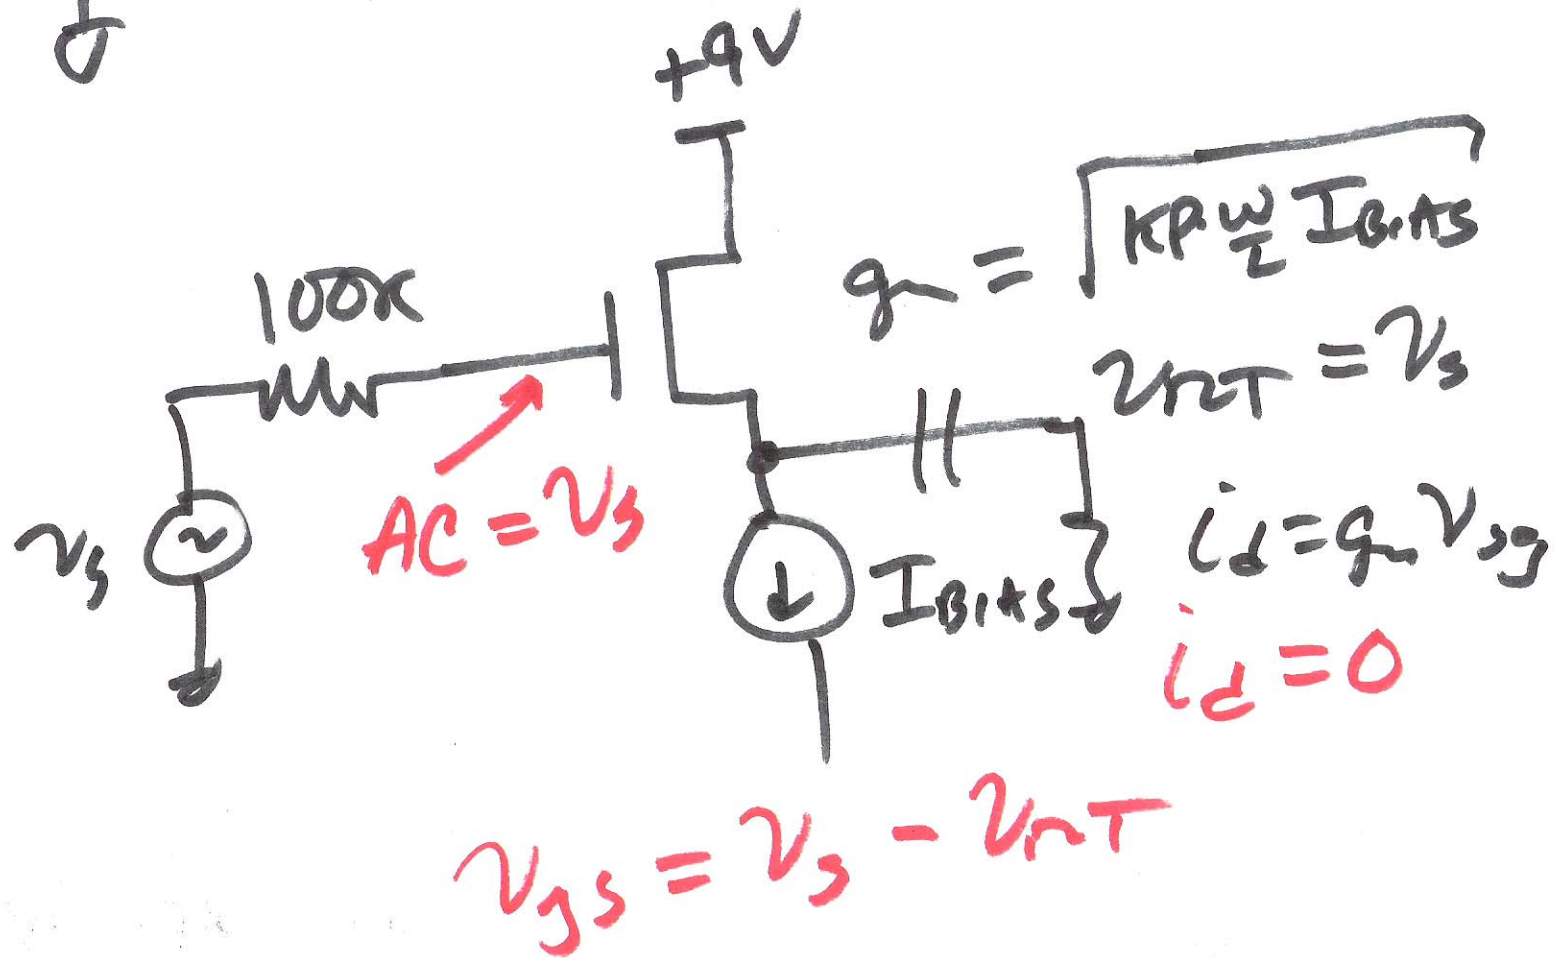 +9V
100K
gm = √KP·W/L IBIAS
vOUT = vs
AC = vs
vs
IBIAS
id = gm vsg
id = 0
vgs = vs - vOUT